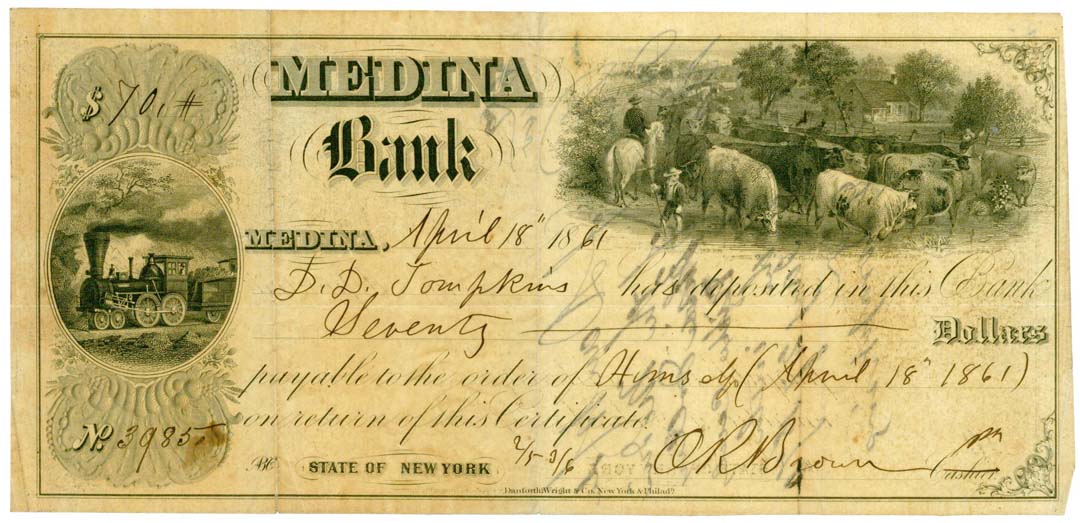 $ 70,#
MEDINA
Bank
MEDINA, April 18" 1861
D. D. Tompkins has deposited in this Bank
Seventy Dollars
payable to the order of Himself (April 18" 1861)
on return of this Certificate.
No. 3985
STATE OF NEW YORK
O R Brown
Cashier
Danforth, Wright & Co. New York & Philada